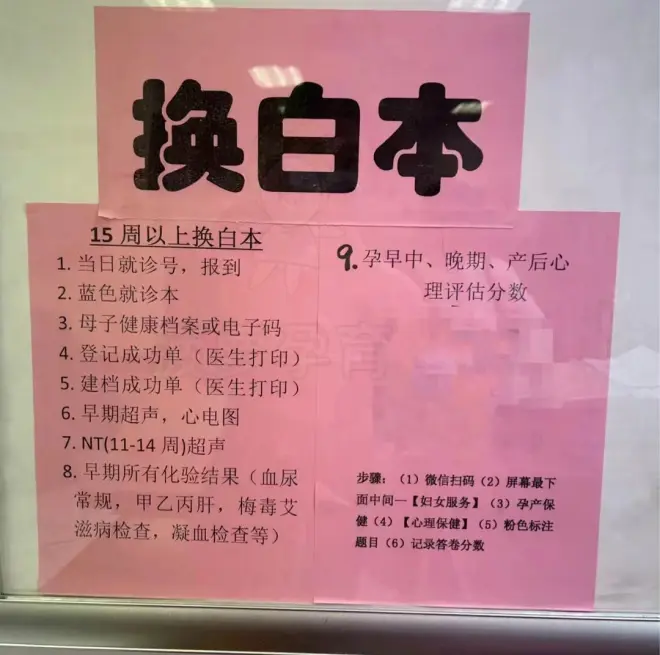 换白本
15 周以上换白本
1. 当日就诊号，报到
2. 蓝色就诊本
3. 母子健康档案或电子码
4. 登记成功单（医生打印）
5. 建档成功单（医生打印）
6. 早期超声，心电图
7. NT(11-14 周)超声
8. 早期所有化验结果（血尿
常规，甲乙丙肝，梅毒艾
滋病检查，凝血检查等）
9. 孕早中、晚期、产后心
理评估分数
步骤：（1）微信扫码（2）屏幕最下
面中间—【妇女服务】（3）孕产保
健（4）【心理保健】（5）粉色标注
题目（6）记录答卷分数